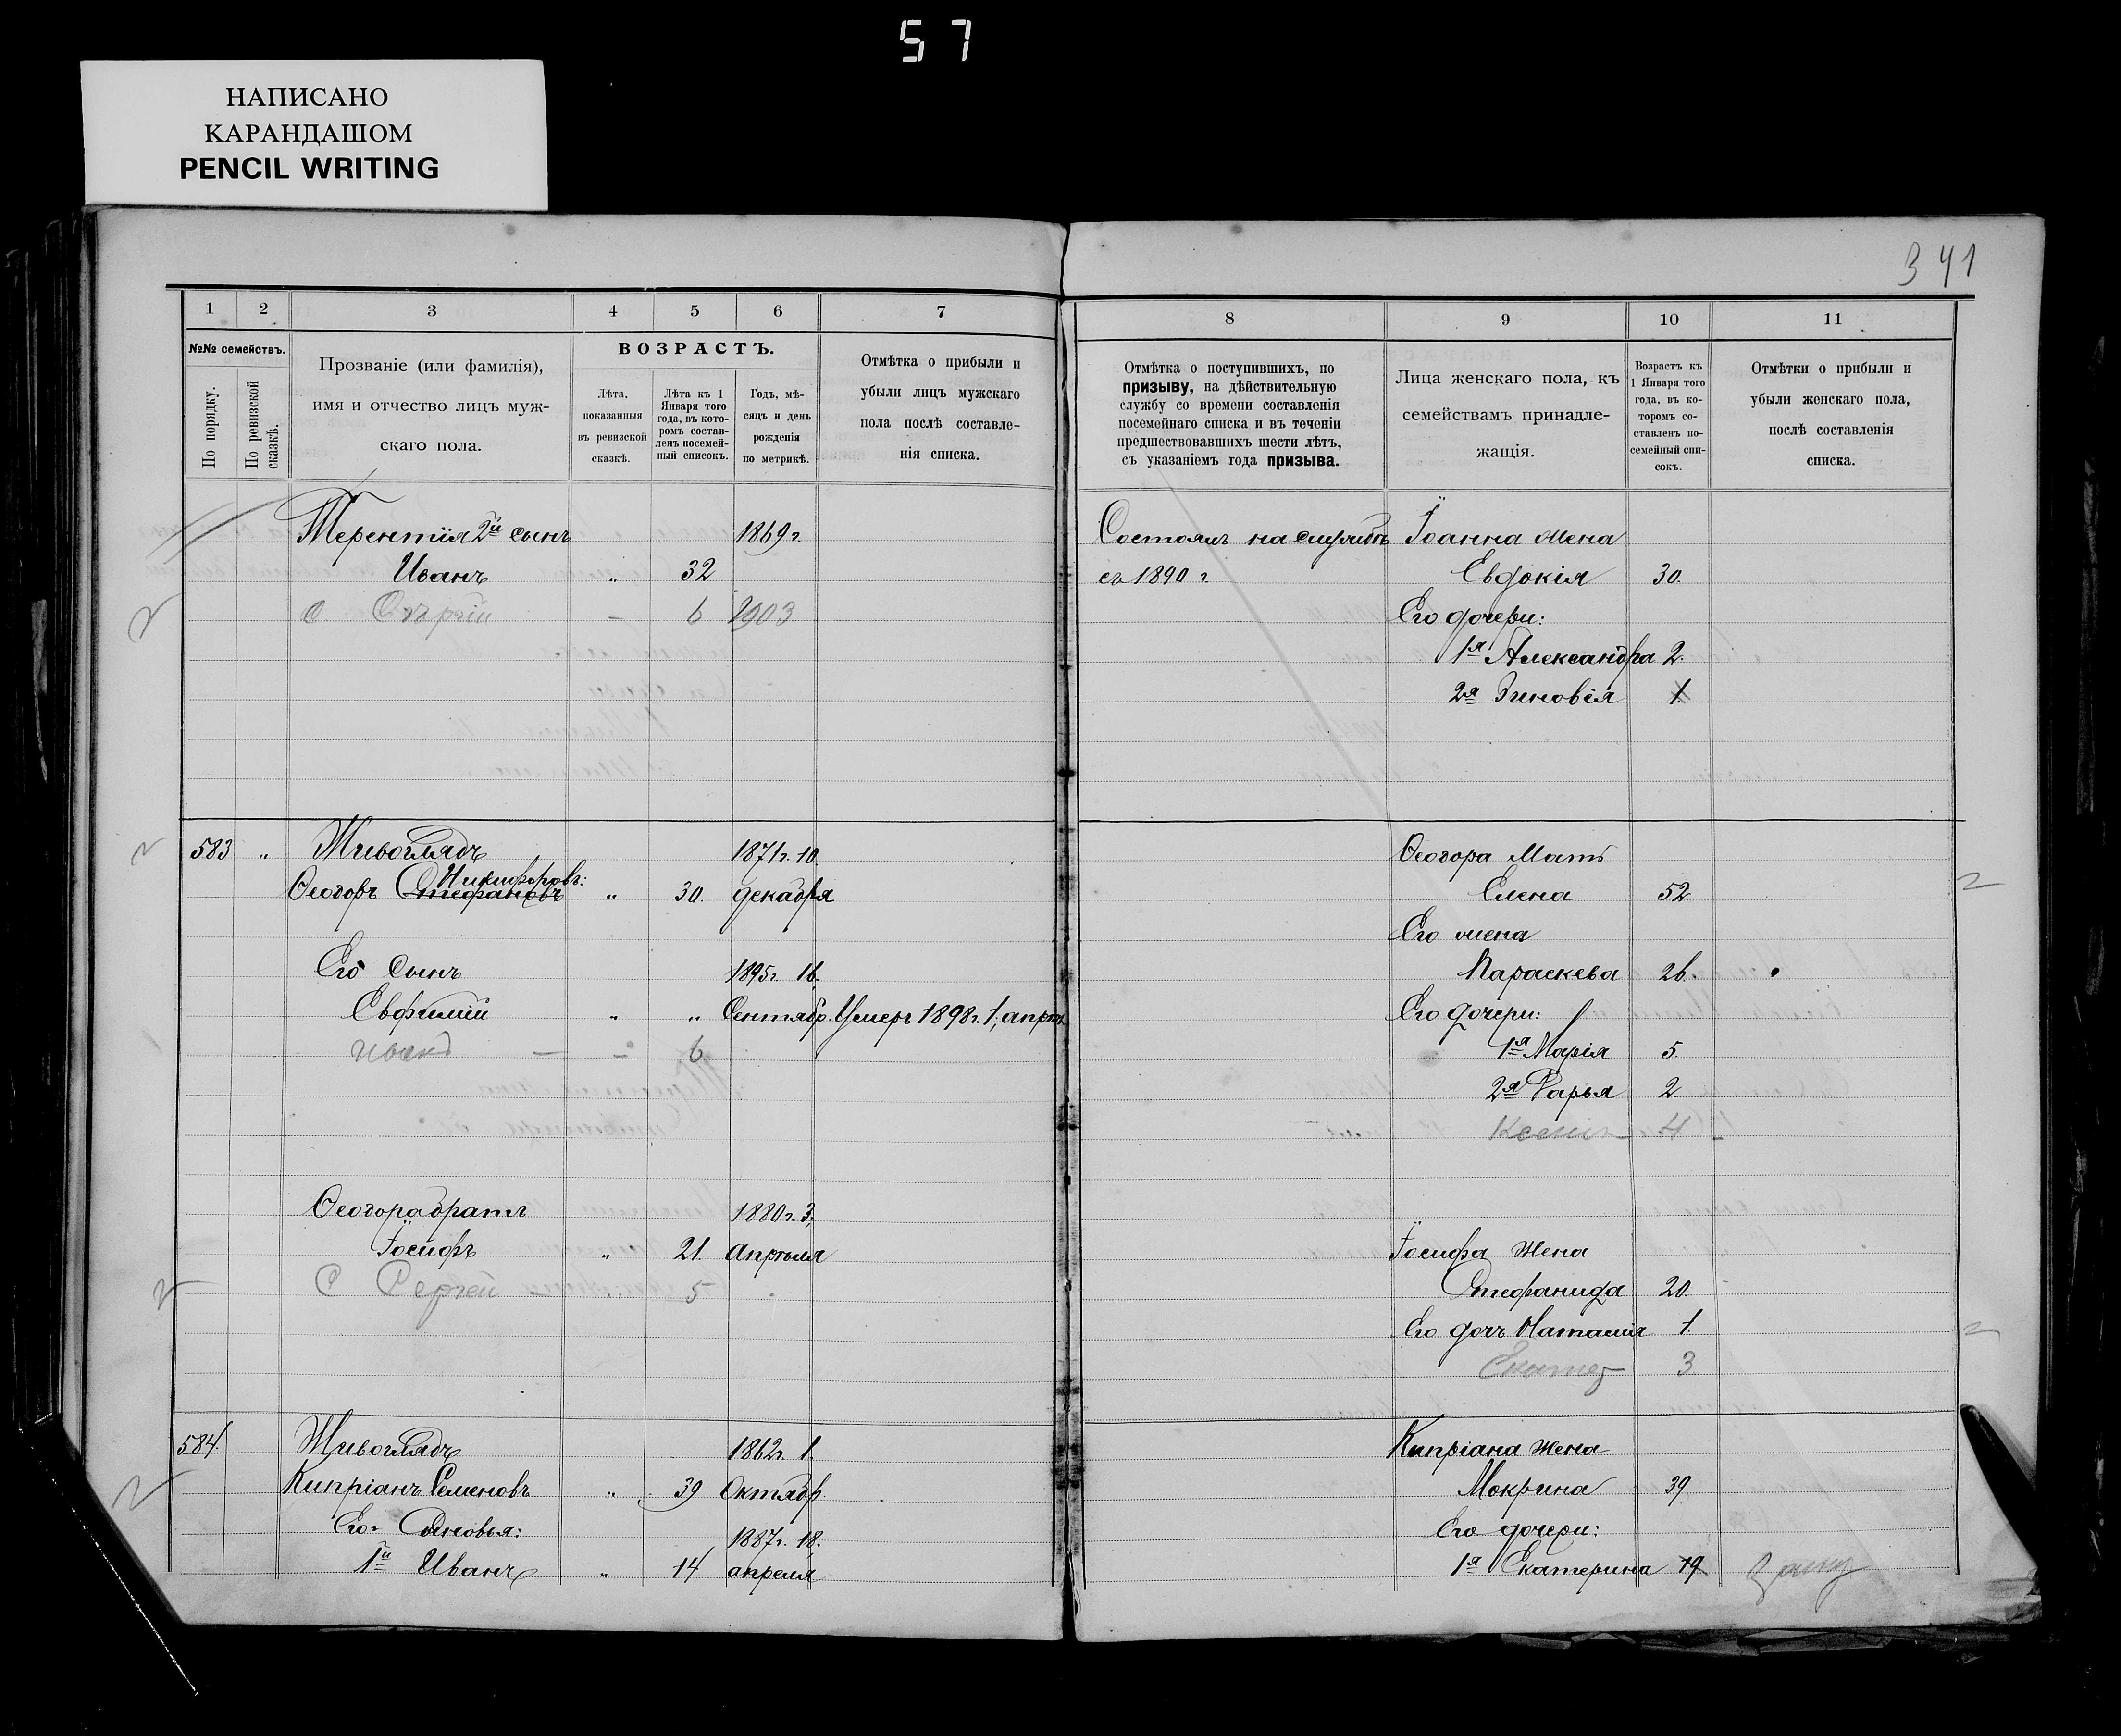 57
НАПИСАНО
КАРАНДАШОМ
PENCIL WRITING
341
1 2 3 4 5 6 7
№№ семействъ.
По порядку.
По ревизской сказкѣ.
Прозваніе (или фамилія),
имя и отчество лицъ муж-
скаго пола.
ВОЗРАСТЪ.
Лѣта,
показанныя
въ ревизской
сказкѣ.
Лѣта къ 1
Января того
года, въ кото-
ромъ состав-
ленъ посемей-
ный списокъ.
Годъ, мѣ-
сяцъ и день
рожденія
по метрикѣ.
Отмѣтка о прибыли и
убыли лицъ мужскаго
пола послѣ составле-
нія списка.
8 9 10 11
Отмѣтка о поступившихъ, по
призыву, на дѣйствительную
службу со времени составленія
посемейнаго списка и въ теченіи
предшествовавшихъ шести лѣтъ,
съ указаніемъ года призыва.
Лица женскаго пола, къ
семействамъ принадле-
жащія.
Возрастъ къ
1 Января того
года, въ ко-
торомъ со-
ставленъ по-
семейный спи-
сокъ.
Отмѣтки о прибыли и
убыли женскаго пола,
послѣ составленія
списка.
Терентія 2й сынъ 1869 г.
Иванъ " 32
С. Сергій — 6 1903
Состоялъ на службѣ
съ 1890 г.
Іоанна жена
Евдокія 30.
Его дочери:
1я Александра 2.
2я Зиновія 1
583 " Живоглядъ 1871 г. 10
Никифоровъ:
Ѳеодоръ Стефановъ " 30. декабря
Его Сынъ 1895 г. 16.
Евфимій " " Сентябр. Умеръ 1898 г. 1, апрѣл
Иванъ — — 6
Ѳеодора братъ 1880 г. 3,
Іосифъ " 21. апрѣля
С Сергей 5
Ѳеодора Мать
Елена 52
Его жена
Параскева 26.
Его дочери:
1я Марія 5.
2я Дарья 2.
Ксенія 4
Іосифа жена
Стефанида 20.
Его дочь Наталія 1
Екатер 3
584. Живоглядъ 1862 г. 1.
Кипріанъ Семеновъ " 39 Октябр.
Его Сыновья: 1887 г. 18.
1й Иванъ " 14 апреля
Кипріана жена
Мокрина 39
Его дочери:
1я Екатерина 19